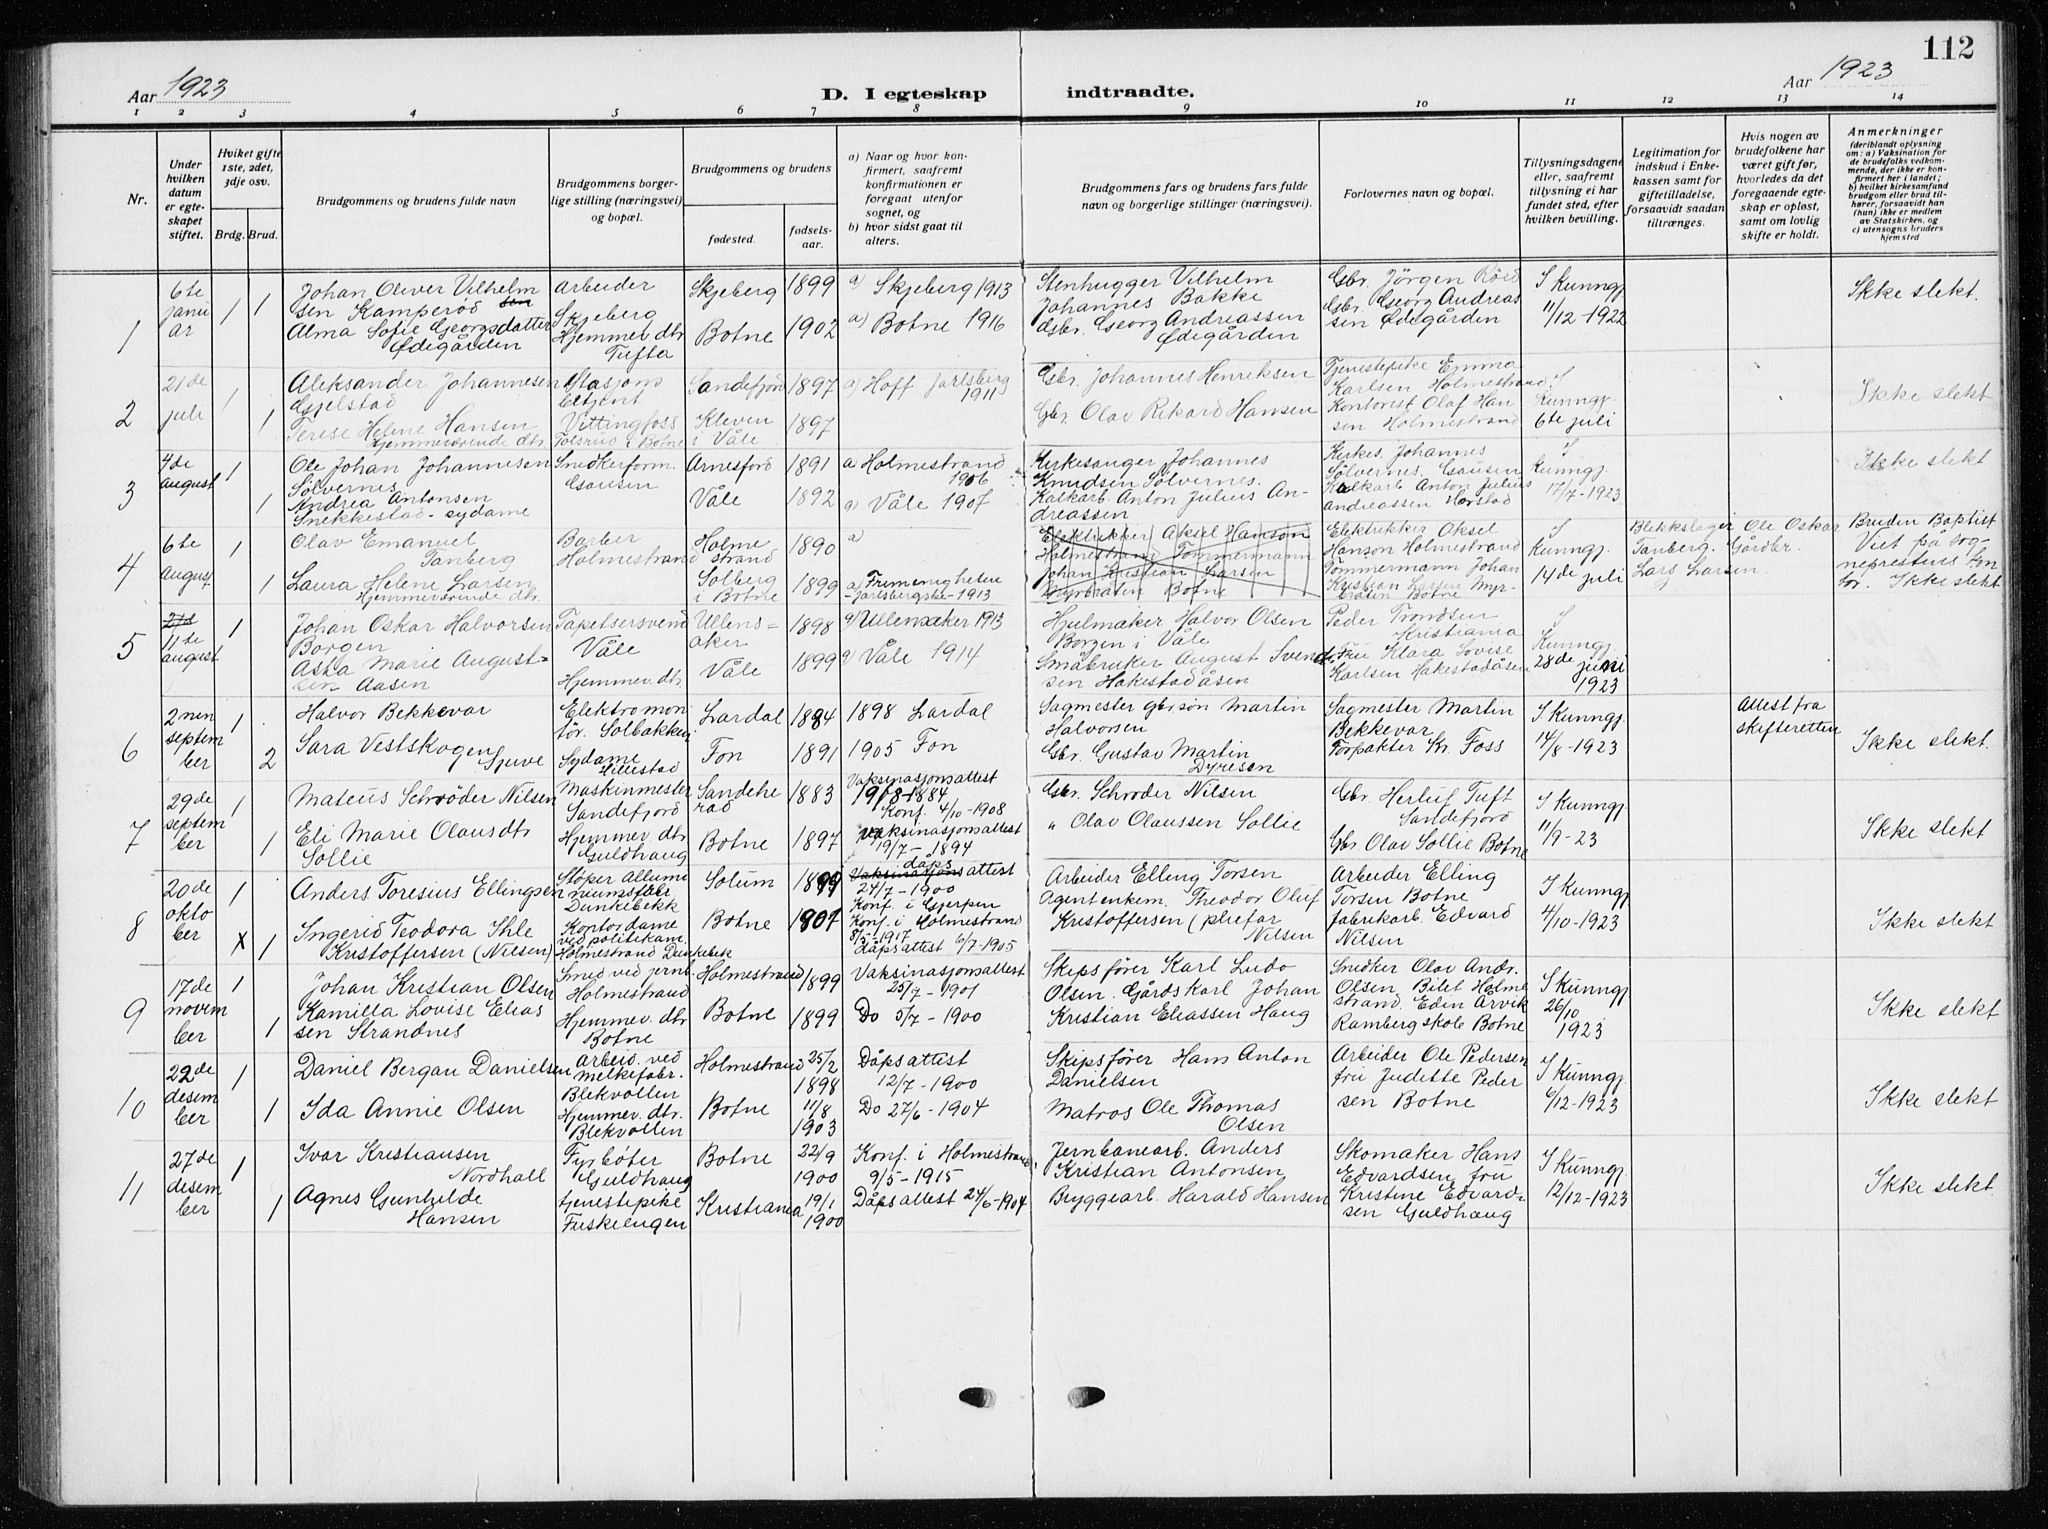 112
Aar 1923
D. I egteskap indtraadte.
Aar 1923
1 2 3 4 5 6 7 8 9 10 11 12 13 14
Nr.
Under hvilken datum er egteskapet stiftet.
Hviket gifte 1ste, 2det, 3dje osv.
Brdg. Brud.
Brudgommens og brudens fulde navn
Brudgommens borgerlige stilling (næringsvei) og bopæl.
Brudgommens og brudens
fødested.
fødselsaar.
a) Naar og hvor konfirmert, saafremt konfirmationen er foregaat utenfor sognet, og
b) hvor sidst gaat til alters.
Brudgommens fars og brudens fars fulde navn og borgerlige stillinger (næringsvei).
Forlovernes navn og bopæl.
Tillysningsdagene eller, saafremt tillysning ei har fundet sted, efter hvilken bevilling.
Legitimation for indskud i Enkekassen samt for giftetilladelse, forsaavidt saadan tiltrænges.
Hvis nogen av brudefolkene har været gift før, hvorledes da det foregaaende egteskap er opløst, samt om lovlig skifte er holdt.
Anmerkninger (deriblandt oplysning om: a) Vaksination for de brudefolks vedkommende, der ikke er konfirmert her i landet; b) hvilket kirkesamfund brudgom eller brud tilhører, forsaavidt han (hun) ikke er medlem av Statskirken, og c) utensogns bruders hjemsted
1
6te januar
1 1
Johan Oliver Vilhelmsen Kamperød
Alma Sofie Georgsdatter Ødegården
Arbeider Skjeberg
Hjemmev. dtr. Tufta
Skjeberg 1899
Botne 1902
a) Skjeberg 1913
a) Botne 1916
Stenhugger Vilhelm Johannes Bakke
Gbr. Georg Andreassen Ødegården
Gbr. Jörgen Röed
Gbr. Georg Andreassen Ødegården
I Kunngj. 11/12-1922
Ikke slekt.
2
21de juli
1 1
Aleksander Johannesen Gjelstad
Terese Helene Hansen
Hjemmeværende dtr.
Stasjonsbetjent Vittingfoss
i Botne
Sandefjord 1897
Kleven i Våle 1897
a) Hoff Jarlsberg 1911
Gbr. Johannes Henriksen
Gbr. Olav Rikard Hansen
Tjenestepike Emma Karlsen Holmestrand.
Kontorist Olaf Hansen Holmestrand
I Kunngj. 6te juli
Ikke slekt
3
4de august
1 1
Ole Johan Johannesen Sölvernes
Andrea Antonsen Snekkestad - sydame
Snedkerform. Gausen
Arnesford 1891
Våle 1892
a Holmestrand 1906
a) Våle 1907
Kirkesanger Johannes Knudsen Sölvernes.
Kalkarb. Anton Julius Andreassen
Kirkes. Johannes Sölvernes, Gausen
Kalkarb Anton Julius Andreassen Herstad
I Kunngj. 17/7-1923
Ikke slekt
4
6te august
1 1
Olav Emanuel Tanberg
Laura Helene Larsen
Hjemmeværende dtr.
Barber Holmestrand
Holmestrand 1890
Solberg i Botne 1899
a)
a) Frimenigheten Jarlsberg - 1913
Elektrikker Aksel Hanson Holmestrand Tömmermann
Johan Kristian Larsen Myrbråten Botne
Elektrikker Aksel Hanson Holmestrand
Tömmermann Johan Kristian Larsen Myrbråten Botne
I Kunngj. 14de juli
Blekkslager Ole Oskar Tanberg. Gårdbr. Lars Larsen
Bruden Baptist
Viet på sogneprestens kontor. Ikke slekt
5
11te august
1 1
Johan Oskar Halvorsen Borgen
Asta Marie Augustsen Aasen
Tapetsersvend Våle
Hjemmev. dtr.
Ullensaker 1898
Våle 1899
a) Ullensaker 1913
a) Våle 1914
Hjulmaker Halvor Olsen Borgen i Våle
Småbruker August Svendsen Hakestadåsen
Peder Trondsen Kristiania
Fru Klara Lovise Karlsen Hakestadåsen
I Kunngj. 28de juni 1923
6
2nen september
1 2
Halvor Bekkevar
Sara Vestskogen Sjuve
Elektromontör. Solbakken
Sydame Hillestad
Lardal 1884
Fon 1891
1898 Lardal
1905 Fon
Sagmester gbrsön Martin Halvorsen
Gbr. Gustav Martin Dyresen
Sagmester Martin Bekkevar
Forpakter Kr. Foss
I Kunngj. 14/8-1923
Attest fra skifteretten
Ikke slekt.
7
29de september
1 1
Mateus Schrøder Nilsen
Eli Marie Olausdtr Sollie
Maskinmester Sandefjord
Hjemmev. dtr. Guldhaug
Sandeherad 1883
Botne 1897
Vaksinasjonsattest 19/8-1884
Konf. 4/10-1908
Vaksinasjonsattest 19/7-1894
Gbr. Schrøder Nilsen
" Olav Olaussen Sollie
Gbr. Herluf Tuft Sandefjord
Gbr. Olav Sollie Botne
I Kunngj. 11/9-23
Ikke slekt
8
20de oktober
1 X 1
Anders Toresius Ellingsen
Ingerid Teodora Ihle Kristoffersen (Nilsen)
Stöper alluminiumsfabr. Dunkebekk
Kontordame ved politikam. Holmestrand Dunkebek
Solum 1899
Botne 1901
dåpsattest 24/7-1900
Konf. i Gjerpen
Konf. i Holmestrand 8/5-1917
Dåpsattest 6/7-1905
Arbeider Elling Torsen
Agentenkem. Theodor Oluf Kristoffersen (plefar Nilsen
Arbeider Elling Torsen Botne
fabrikarb. Edvard Nilsen
I Kunngj. 4/10-1923
Ikke slekt
9
17de november
1 1
Johan Kristian Olsen
Kamilla Lovise Eliassen Strandnes
Smed ved jernb. Holmestrand
Hjemmev. dtr Botne
Holmestrand 1899
Botne 1899
Vaksinasjonsattest 25/7-1901
Do 5/7-1900
Skipsfører Karl Ludo Olsen. Gårdskarl Johan Kristian Eliassen Haug
Snedker Olav Andr. Olsen, Bilet Holmestrand. Edin Arvik Ramberg skole Botne
I Kunngj 26/10 1923
Ikke slekt
10
22de desember
1 1
Daniel Bergan Danielsen
Ida Annie Olsen
Arbeid. ved melkefabr. Blekvollen
Hjemmev. dtr. Blekvollen
Holmestrand 25/2 1898
Botne 11/8 1903
Dåpsattest 12/7-1900
Do 27/6-1904
Skipsfører Hans Anton Danielsen
Matros Ole Thomas Olsen
Arbeider Ole Pedersen
fru Judette Pedersen Botne
I Kunngj. 6/12-1923
Ikke slekt
11
27de desember
1 1
Ivar Kristiansen Nordhall
Agnes Gunhilde Hansen
Fyrbøter Guldhaug
tjenestepike Fuskeengen
Botne 22/9 1900
Kristiania 19/1 1900
Konf. i Holmestrand 9/5-1915
Dåpsattest 24/6-1904
Jernbanearb. Anders Kristian Antonsen
Bryggearb. Harald Hansen
Skomaker Hans Edvardsen fru Kristine Edvardsen Guldhaug
I Kunngj. 12/12-1923
Ikke slekt.